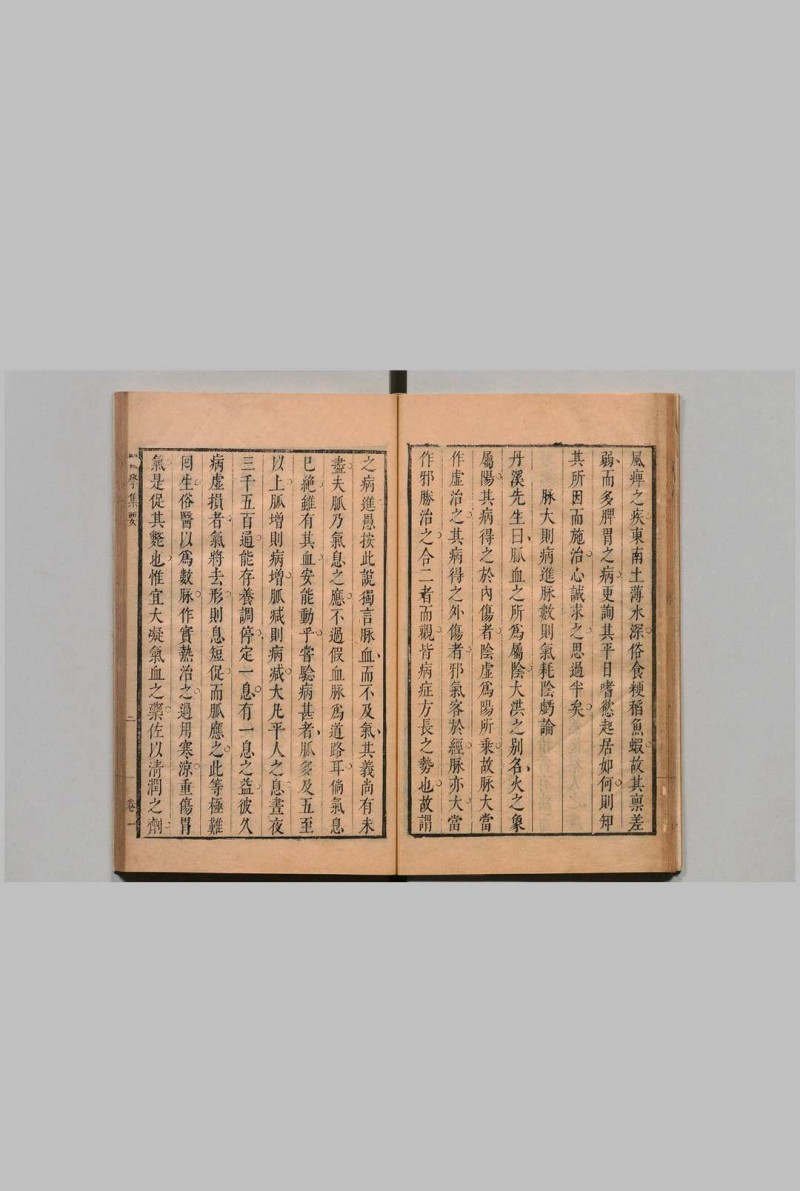 風痺之疾東南土薄水深俗食粳稻魚蝦故其禀差
弱而多脾胃之病更詢其平日嗜慾起居如何則知
其所因而施治心誠求之思過半矣
脉大則病進脉數則氣耗陰虧論
丹溪先生曰脈血之所爲屬陰大洪之别名火之象
屬陽其病得之於內傷者陰虛爲陽所乗故脉大當
作虛治之其病得之外傷者邪氣客於經脉亦大當
作邪勝治之合二者而觀皆病症方長之勢也故謂
之病進愚按此說獨言脉血而不及氣其義尚有未
盡夫脈乃氣息之應不過假血脉爲道路耳倘氣息
已絶雖有其血安能動乎嘗驗病甚者脈多及五至
以上脈增則病增脈减則病减大凢平人之息晝夜
三千五百過能存養調停定一息有一息之益彼久
病虛損者氣將去形則息短促而脈應之此等極難
囘生俗醫以爲數脉作實熱治之過用寒涼重傷胃
氣是促其斃也惟宜大凝氣血之藥佐以清潤之劑
學集要
二
卷一